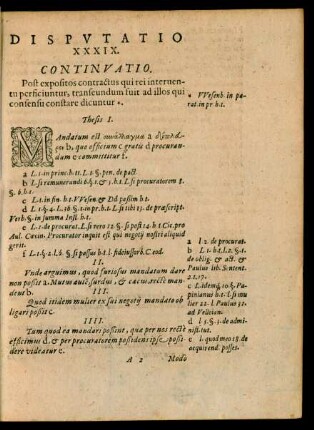 DISPVTATIO
XXXIX.
CONTINVATIO.
Post expositos contractus qui rei interuen-
tu perficiuntur, transeundum fuit ad illos qui
consensu constare dicuntur *.
* VVesenb. in pa-
rat. in pr. h. t.
Thesis I.
MAndatum est συνάλλαγμα a
b, quo officium c gratis d procuran-
dum e committitur f.
a L. 1. in princ. h. t. L. 2. §. pen. de pact.
b L. si remunerandi 6. §. 1. & 3. h. t. L. si procuratorem 8.
§. 6. h. t.
c L. 1. in fin. h. t. VVesen. & Dd. passim h. t.
d L. 1. §. 4. L. 16. §. 1. in pr. h. t. L. si tibi 13. de præscript.
Verb. §. in summa Inst. h. t.
e L. 1. de procurat. L. si vero 12. §. si post 14. h. t. Cic. pro
Aul. Cæcin. Procurator inquit est qui negotij nostri aliquid
gerit.
f L. 1. §. 2. L. §. si passus h. t. l. fideiussor C. eod.
II.
Vnde arguimus, quod furiosus mandatum dare
non possit a. Mutus aut surdus, & cæcus rectè man-
det b.
a l. 2. de procurat.
b L. 1. & L. 2. §. 1.
de oblig. & act. &
Paulus lib. Sentent.
III.
Quod itidem mulier ex suo negotij mandato ob-
ligari possit c.
c L. idemq́, 10. §. Pa-
pinianus h. t. L. si mu-
lier 22. l. Paulus 32.
ad Velleian.
IIII.
Tum quod ea mandari possint, quæ per nos rectè
efficimus d. & per procuratorem possidens ipse possi-
dere videatur e.
d l. 5. §. 1. de admi-
nistr. tut.
e l. quod meo 18. de
acquirend. posses.
A 2 Modo